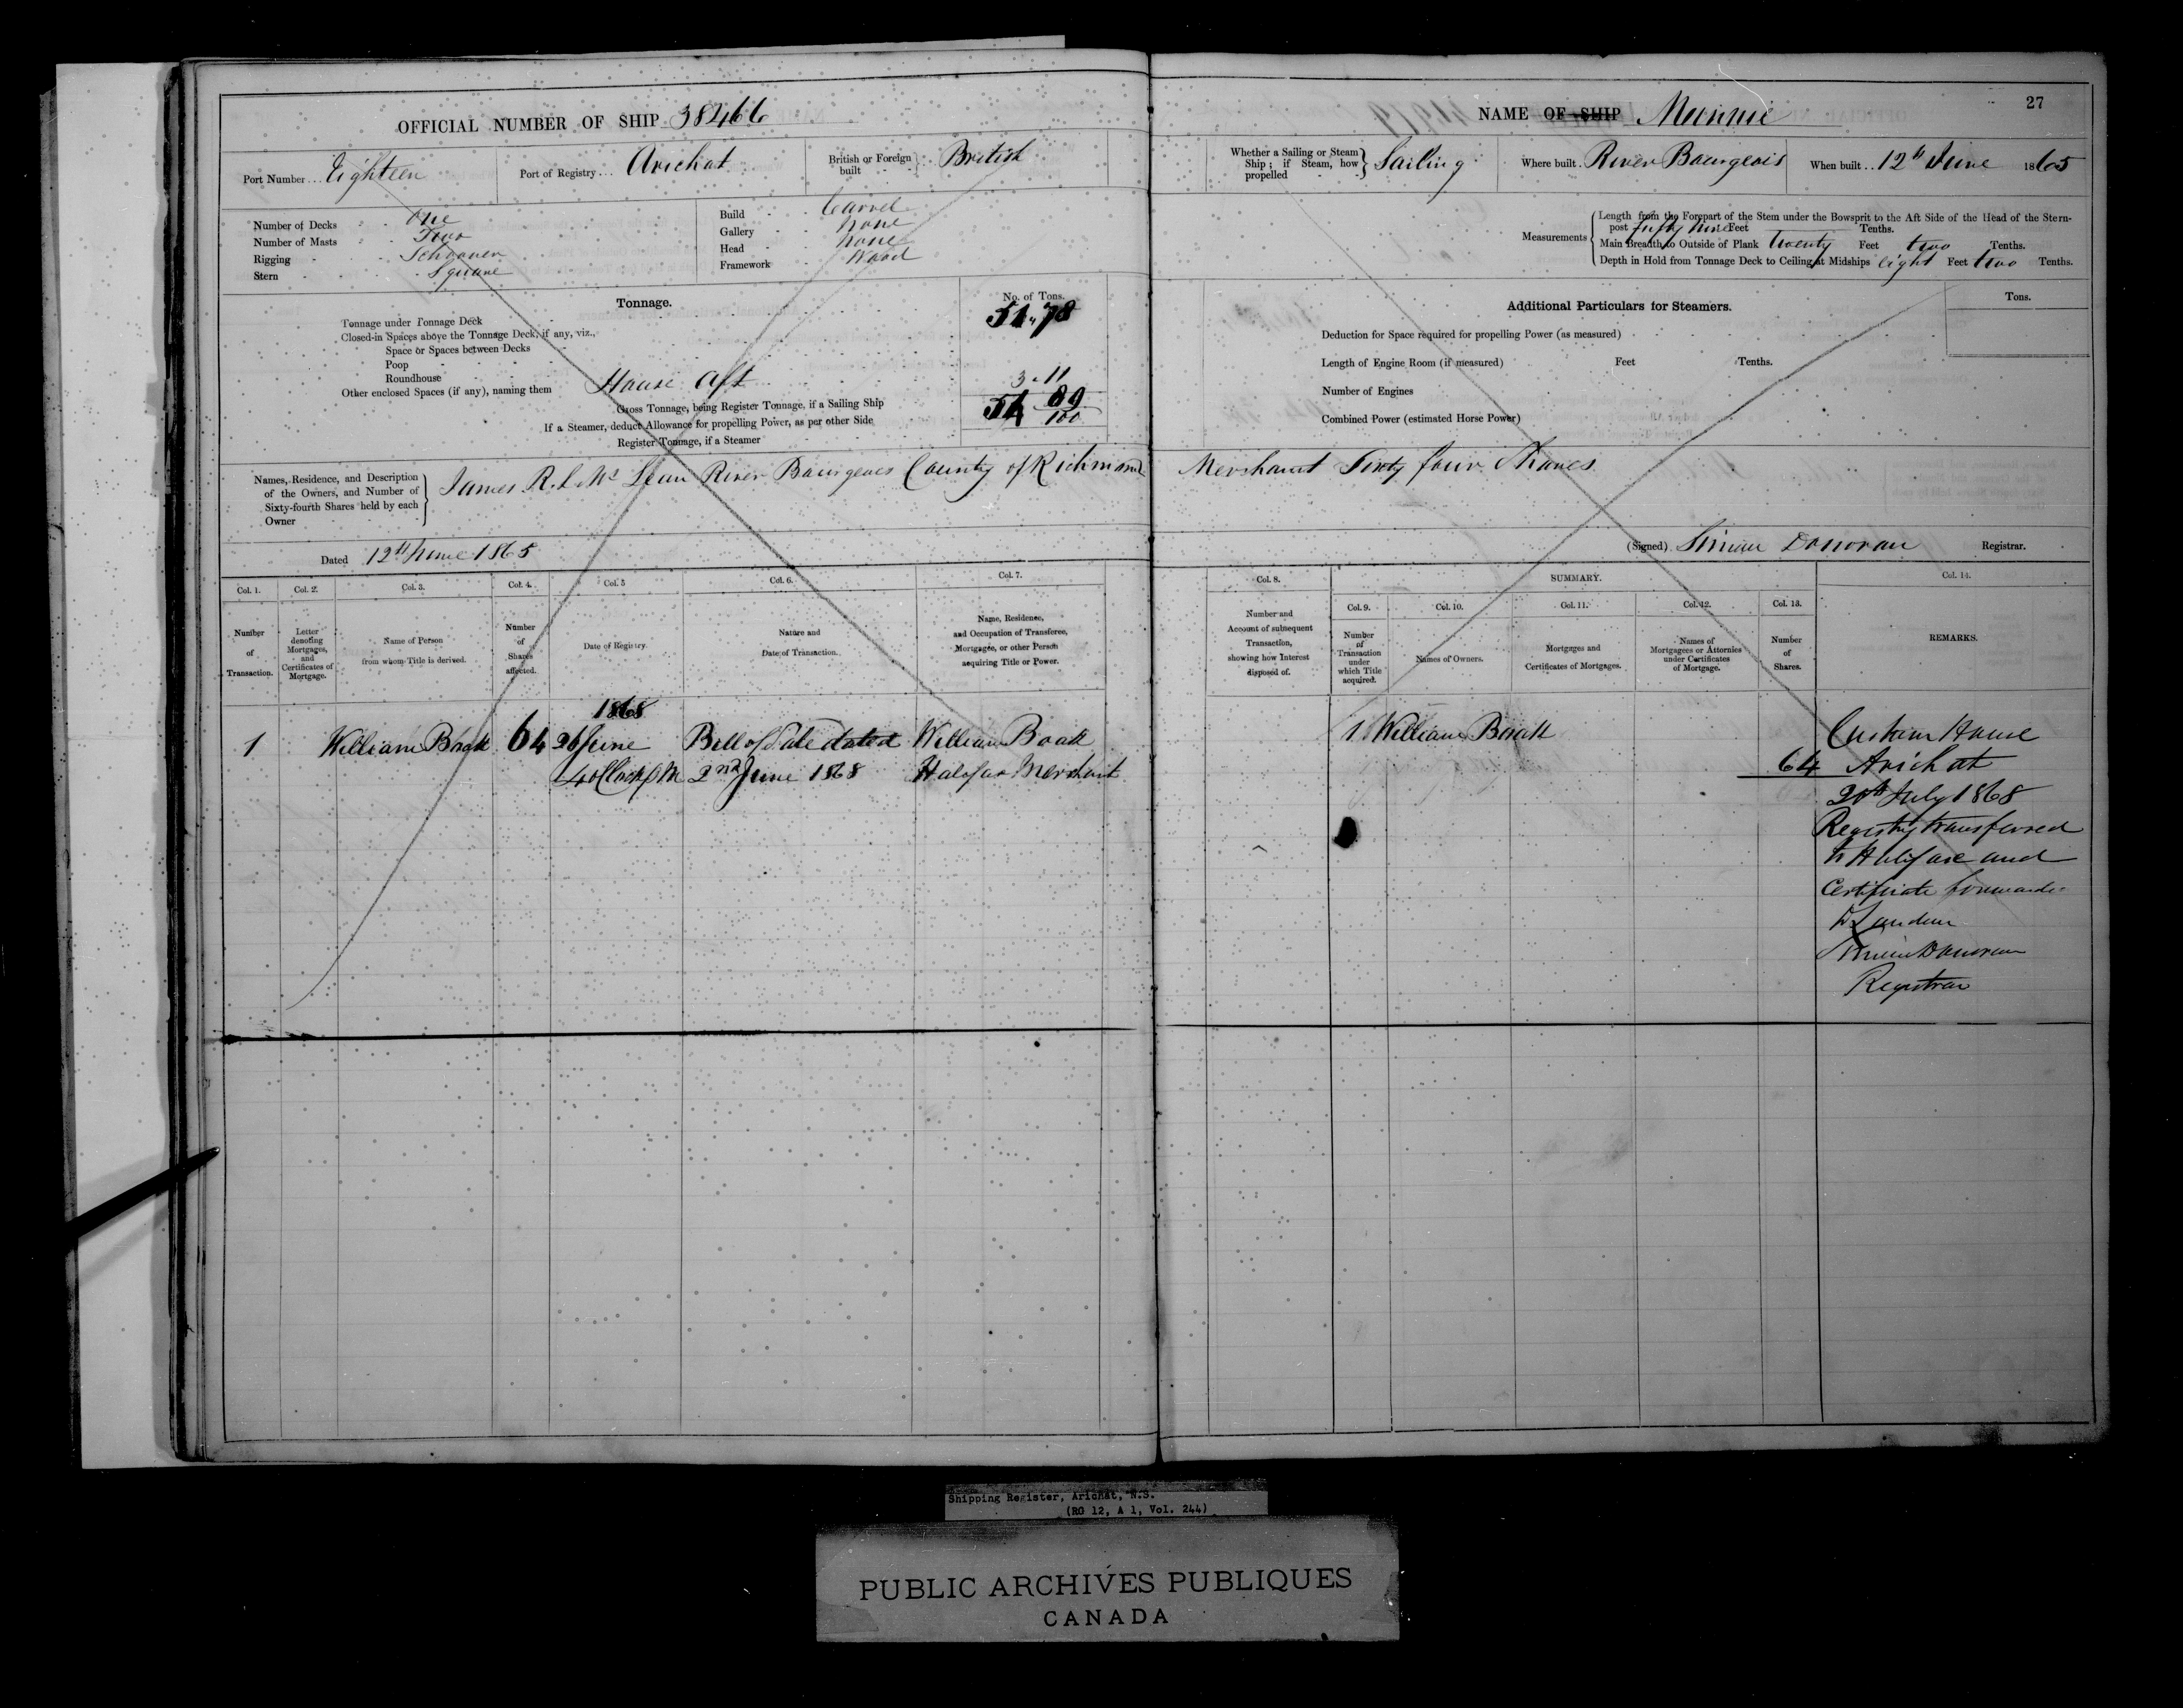 27
OFFICIAL NUMBER OF SHIP 38466
NAME OF SHIP Minnie
Port Number . . . Eighteen
Port of Registry . . . Arichat
British or Foreign built British
Whether a Sailing or Steam Ship; if Steam, how propelled Sailing
Where built . River Bourgeois
When built . . 12th June 1865
Number of Decks One
Number of Masts Two
Rigging Schooner
Stern Square
Build Carvel
Gallery None
Head None
Framework Wood
Measurements
Length from the Forepart of the Stem under the Bowsprit to the Aft Side of the Head of the Stern-
post fifty nine Feet Tenths.
Main Breadth to Outside of Plank twenty Feet two Tenths.
Depth in Hold from Tonnage Deck to Ceiling at Midships eight Feet two Tenths.
Tonnage.
No. of Tons.
Tonnage under Tonnage Deck 51.78
Closed-in Spaces above the Tonnage Deck, if any, viz.,
Space or Spaces between Decks
Poop
Roundhouse
Other enclosed Spaces (if any), naming them House Aft 3.11
Gross Tonnage, being Register Tonnage, if a Sailing Ship 54 89/100
If a Steamer, deduct Allowance for propelling Power, as per other Side
Register Tonnage, if a Steamer
Additional Particulars for Steamers.
Tons.
Deduction for Space required for propelling Power (as measured)
Length of Engine Room (if measured) Feet Tenths.
Number of Engines
Combined Power (estimated Horse Power)
Names, Residence, and Description
of the Owners, and Number of
Sixty-fourth Shares held by each
Owner
James R. L. McLean River Bourgeois County of Richmond Merchant Sixty four Shares
Dated 12th June 1865
(Signed) Simon Donovan Registrar.
Col. 1. Col. 2. Col. 3. Col. 4. Col. 5 Col. 6. Col. 7. Col. 8. SUMMARY. Col. 14.
Col. 9. Col. 10. Col. 11. Col. 12. Col. 13.
Number of Transaction.
Letter denoting Mortgages, and Certificates of Mortgage.
Name of Person from whom Title is derived.
Number of Shares affected.
Date of Registry.
Nature and Date of Transaction.
Name, Residence, and Occupation of Transferee, Mortgagee, or other Person acquiring Title or Power.
Number and Account of subsequent Transaction, showing how Interest disposed of.
Number of Transaction under which Title acquired.
Names of Owners.
Mortgages and Certificates of Mortgages.
Names of Mortgagees or Attornies under Certificates of Mortgage.
Number of Shares.
REMARKS.
1868
1 William Boak 64 26 June Bill of Sale dated William Boak
4 oClock P M 2nd June 1868 Halifax Merchant
1 William Boak
64
Custom House
Arichat
20th July 1868
Registry transferred
to Halifax and
Certificate forwarde-
to London
Simon Donovan
Registrar
Shipping Register, Arichat, N.S.
(RG 12, A 1, Vol. 244)
PUBLIC ARCHIVES PUBLIQUES
CANADA